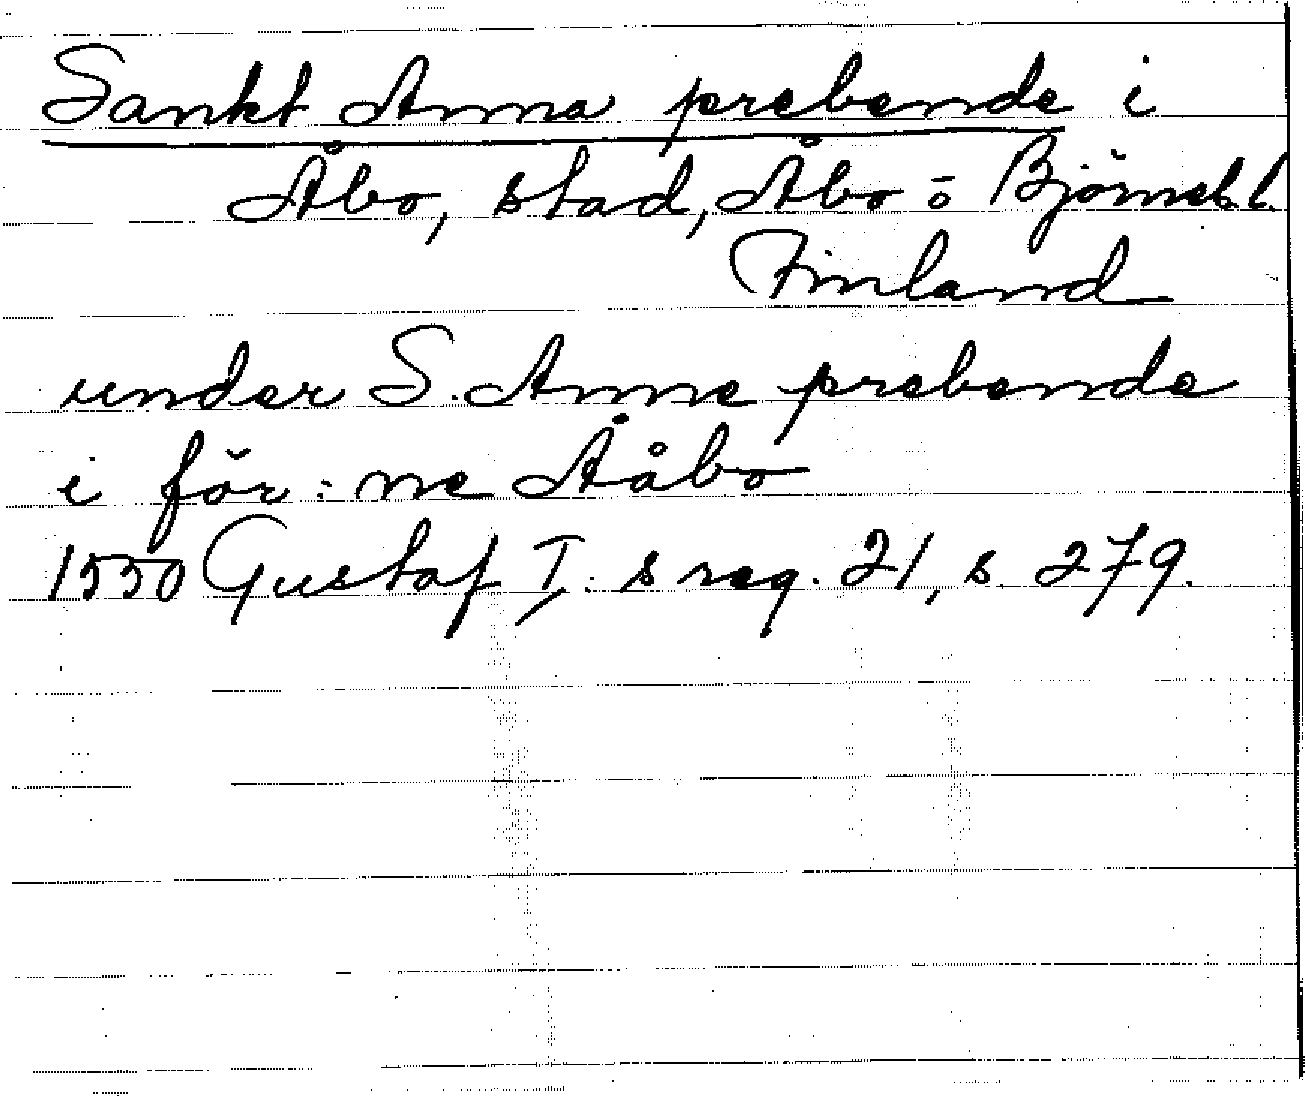 Sankt Anna prebende i
Åbo, stad, Åbo o Björneb. l.
Finland
under S. Anne prebende
i för:ne Ååbo
1550 Gustaf I:s reg. 21, s. 279.